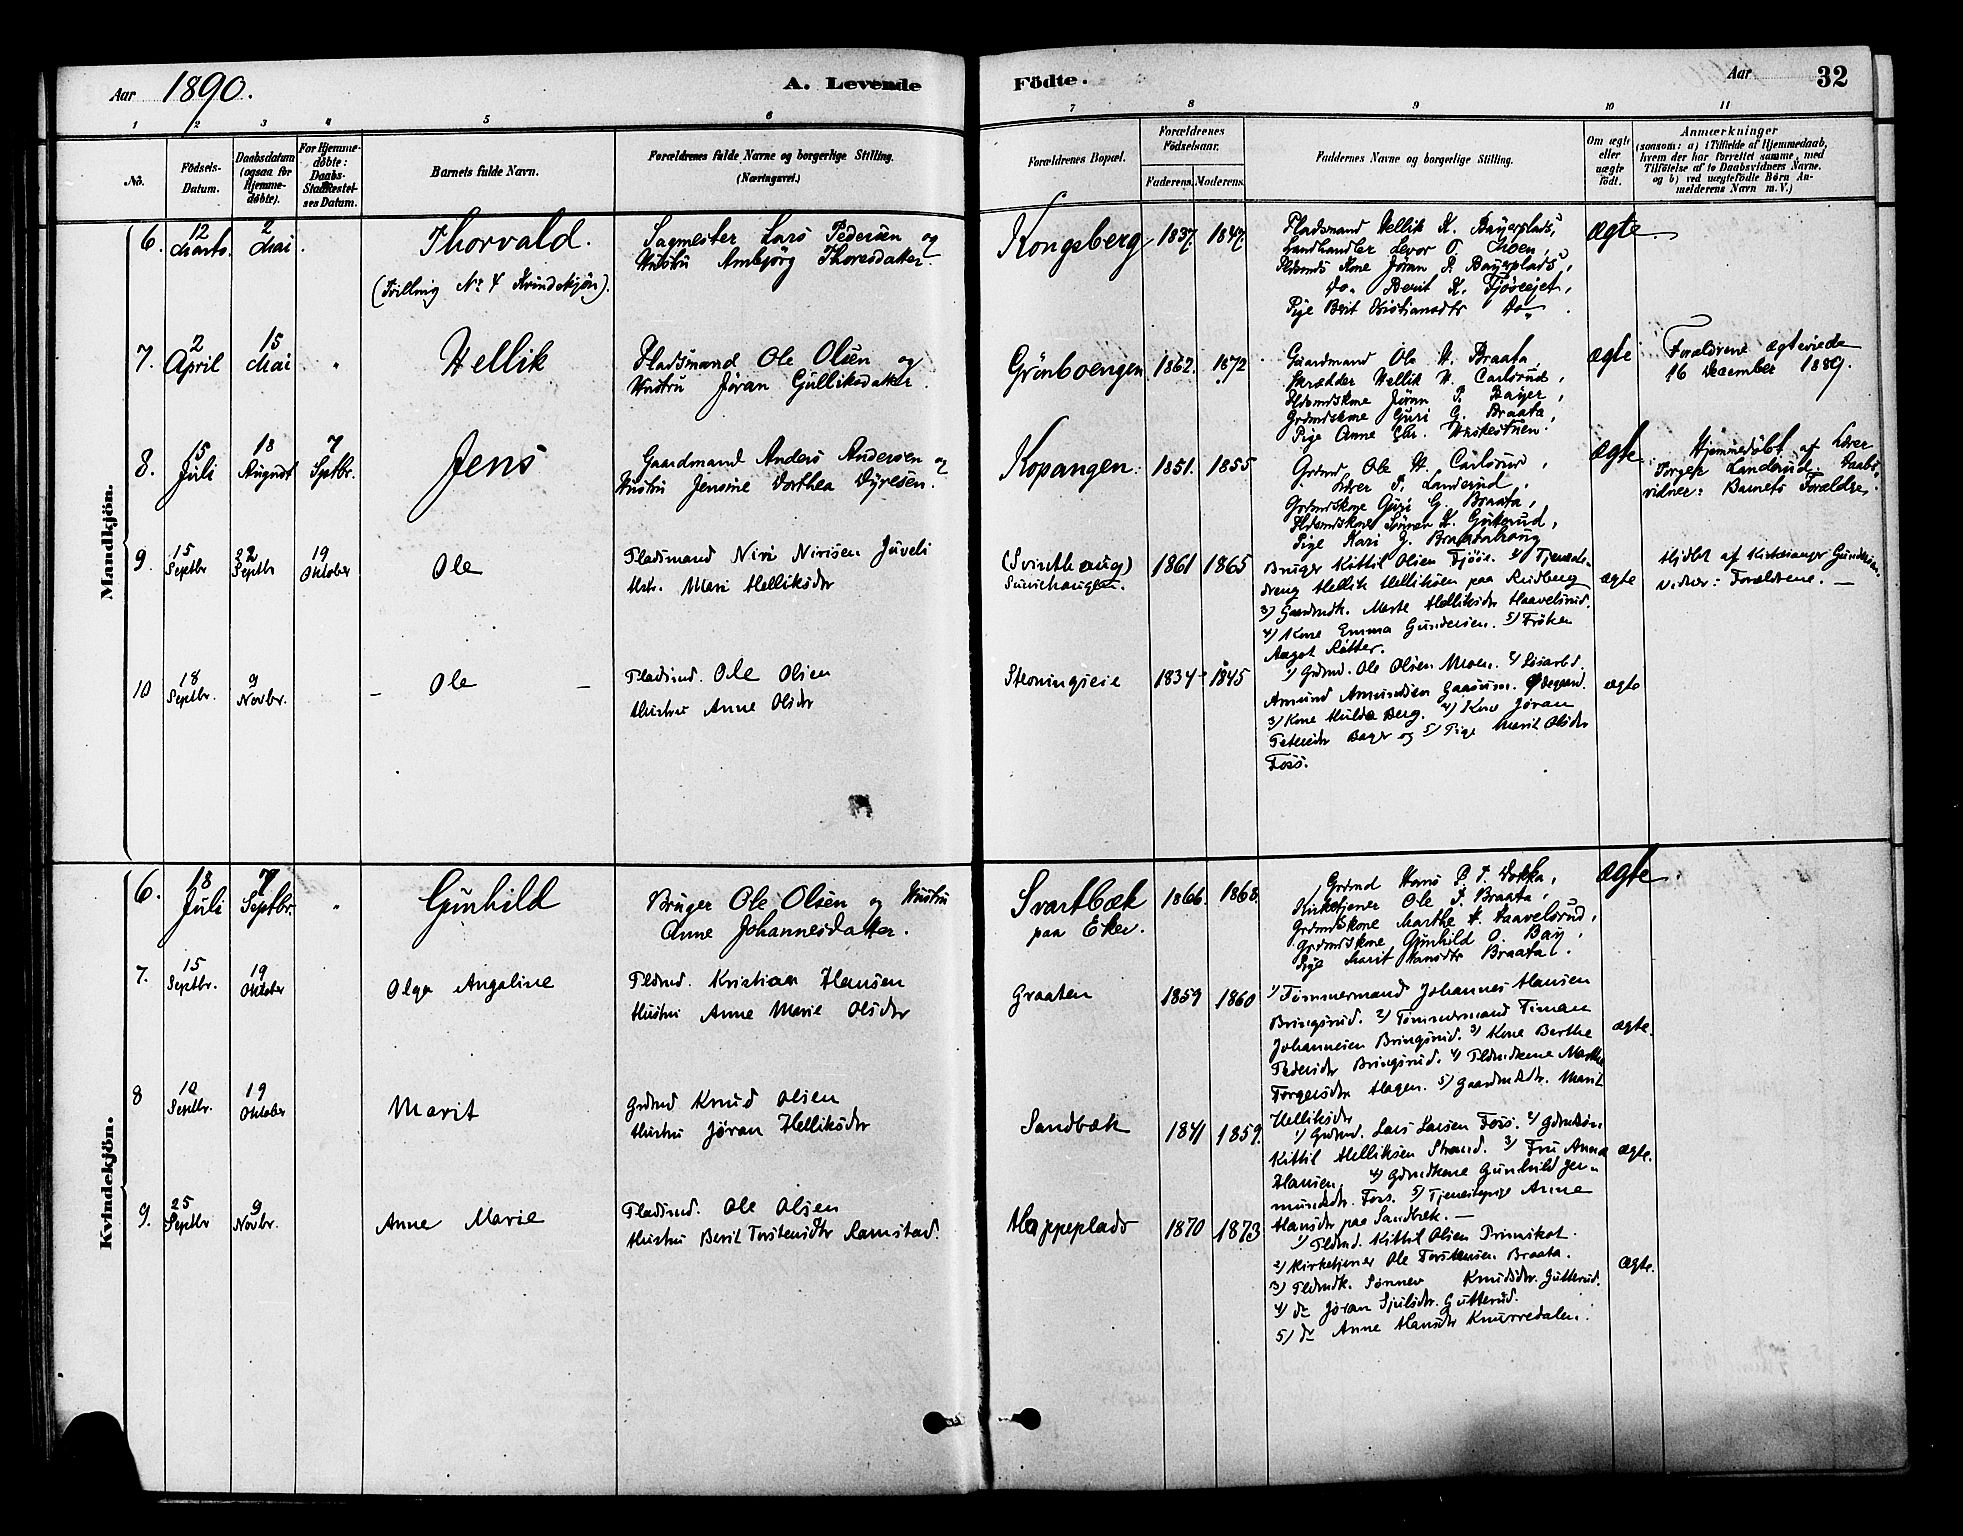 Aar 1890.
A. Levende
Födte.
Aar
32
1 2 3 4 5 6 7 8 9 10 11
No.
Födsels-Datum.
Daabsdatum (ogsaa for Hjemme-døbte).
For Hjemme-døbte: Daabs-Stadfæstel-ses Datum.
Barnets fulde Navn.
Forældrenes fulde Navne og borgerlige Stilling. (Næringsvei.)
Forældrenes Bopæl.
Forældrenes Födselsaar.
Faderens. Moderens.
Faddernes Navne og borgerlige Stilling.
Om ægte eller uægte født.
Anmærkninger
(saasom: a) i Tilfælde af Hjemmedaab, hvem der har forrettet samme, med Tilføielse af to Daabsvidners Navne, og b) ved uægtefødte Børn Anmelderens Navn m. V.)
Mandkjön.
6. 12 Marts. 2 Mai.
Thorvald.
(Trilling No 4 Kvindekjøn).
Sagmester Lars Pedersen og
Hustru Ambjørg Thoresdatter.
Kongsberg 1837 1847
Pladsmand Hellik K. Bayerplads,
Landhandler Levor T. Moen,
Pldsmds Kone Jøran P. Bayerplads,
Do. Berit K.
Pige Berit Kristiansdtr Do
ægte.
7. 2 April 15 Mai "
Hellik
Pladsmand Ole Olsen og
Hustru Jøran Gulliksdatter.
Grönboengen 1862. 1872
Gaardmand Ole H. Braata
Skrædder Hellik H. Carlsrud,
Pldsmdskone Jøran P. Bayer,
Grdmdskone Guri G. Braata,
Pige Anne Chr.
ægte
Forældrene ægteviede
16 December 1889.
8. 15 Juli 18 August 7 Septbr.
Jens
Gaardmand Anders Andersen og
Hustru Jensine Dorthea Dyresen.
Kopangen. 1851. 1855
Grdmd Ole H. Carlsrud,
Lærer T. Landerud,
Grdmdskone Guri G. Braata,
Pldsmdskone Synnøv K. Guterud,
Pige Kari J. Braatahaug
ægte
Hjemmedøbt af Lærer
Torger Landerud. Daabs-
vidner: Barnets Forældre.
9. 15 Septbr 22 Septbr 19 Oktober
Ole
Pladsmand Niri Nirisen Juveli
Hstr. Mari Helliksdtr
(Svinthaug)
Svinehaugen. 1861 1865
Bruger Kittil Olsen Fjøse. 2) Tjeneste-
dreng Hellik Helliksen paa Rudberg
3) Gaardmdk. Marte Helliksdtr Haavelsrud.
4) Kone Emma Gundersen. 5) Frøken
Aagot Rötter.
ægte
Hjdbt af Kirkesanger Gundersen.
Vidner: Forældrene. —
10 18 Septbr. 9 Novbr.
– Ole –
Pladsmd. Ole Olsen
Hustru Anne Olsdtr
Steningseie 1834 1845
1) Grdmd. Ole Olsen Moen. 2) Løsarbd.
Amund Amundsen Gaasum. Ødegaard.
3) Kone Hulda Berg. 4) Kone Jøran
Petersdtr Bager og 5) Pige Marit Olsdtr
Foss.
ægte
Kvindekjön.
6. 18 Juli 7 Septbr. "
Gunhild
Bruger Ole Olsen og Hustru
Anne Johannesdatter.
Svartbæk
paa Eker. 1866. 1868.
Grdmd Hans P. T. Dokka,
Kirketjener Ole T. Braata,
Grdmdskone Marthe H. Haavelsrud,
Grdmdskone Gunhild O. Bay,
Pige Marit Hansdtr Braata.
ægte.
7. 15 Septbr. 19 Oktober
Olga Angaline
Pldmd. Kristian Hansen
Hustru Anne Marie Olsdtr
Graaten 1859 1860
1) Tømmermand Johannes Hansen
Bringsrud. 2) Tømmermand Timan
Johannesen Bringsrud. 3) Kone Berthe
Pedersdtr Bringsrud. 4) Pldmdkone Marthe
Torgersdtr Hagen. 5) Gaardmdsdtr. Marit
Helliksdtr
ægte.
8 10 Septbr. 19 Oktober
Marit
Grdmd Knud Olsen
Hustru Jøran Helliksdtr
Sandbæk 1841 1859.
1) Grdmd. Lars Larsen Foss. 2) Gdmdsøn
Kittil Helliksen Strand. 3) Fru Anna
Hansen. 4) Gdmdkone Gunhild Jer-
mundsdtr. Foss. 5) Tjenestepige Anne
Hansdtr paa Sandbæk. —
ægte.
9. 25 Septbr 9 Novbr.
Anne Marie
Pladsmd. Ole Olsen
Hustru Berit Torstensdtr Ramstad.
Happeplads 1870 1873
1) Pldmd. Kittil Olsen
2) Kirketjener Ole Torstensen Braata.
3) Pldmdk. Sønnev Knudsdtr. Gutterud.
4) do Jøran Sjulsdtr. Gutterud.
5) do Anne Hansdtr Knurredalen.
Ægte.